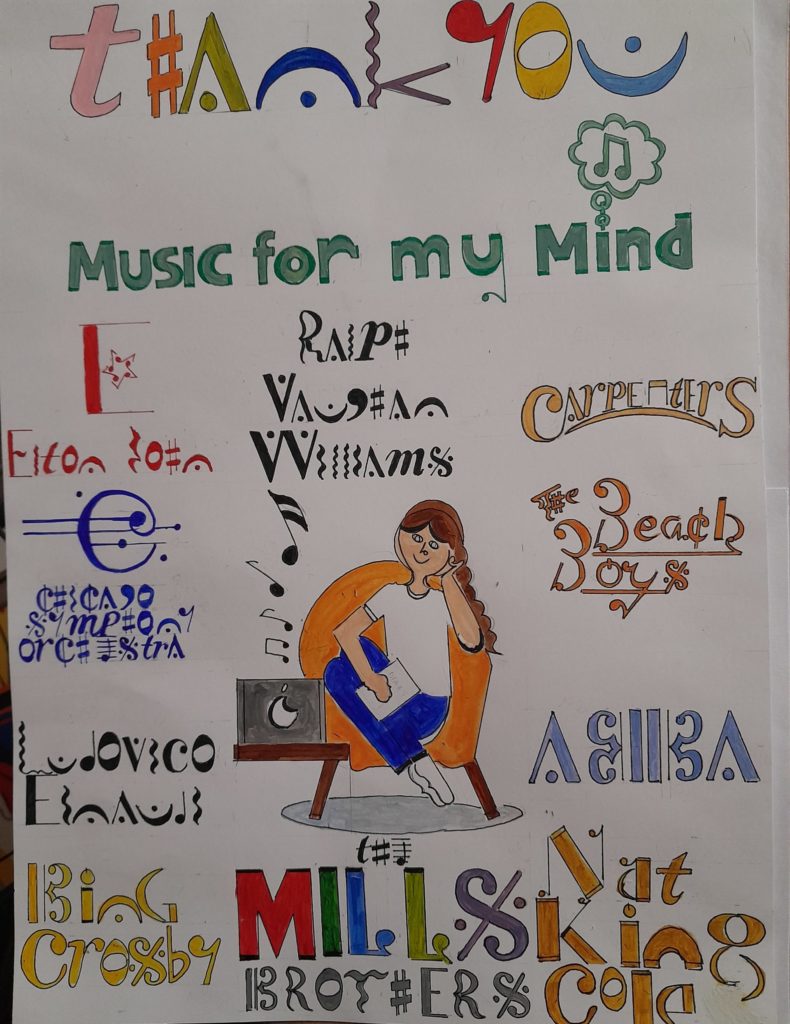 thank you
Music for my Mind
E
Elton John
Ralph
Vaughan
Williams
Carpenters
The
Beach
Boys
C
Chicago
Symphony
Orchestra
Ludovico
Einaudi
ABBA
Bing
Crosby
the
MILLS
BROTHERS
Nat
King
Cole